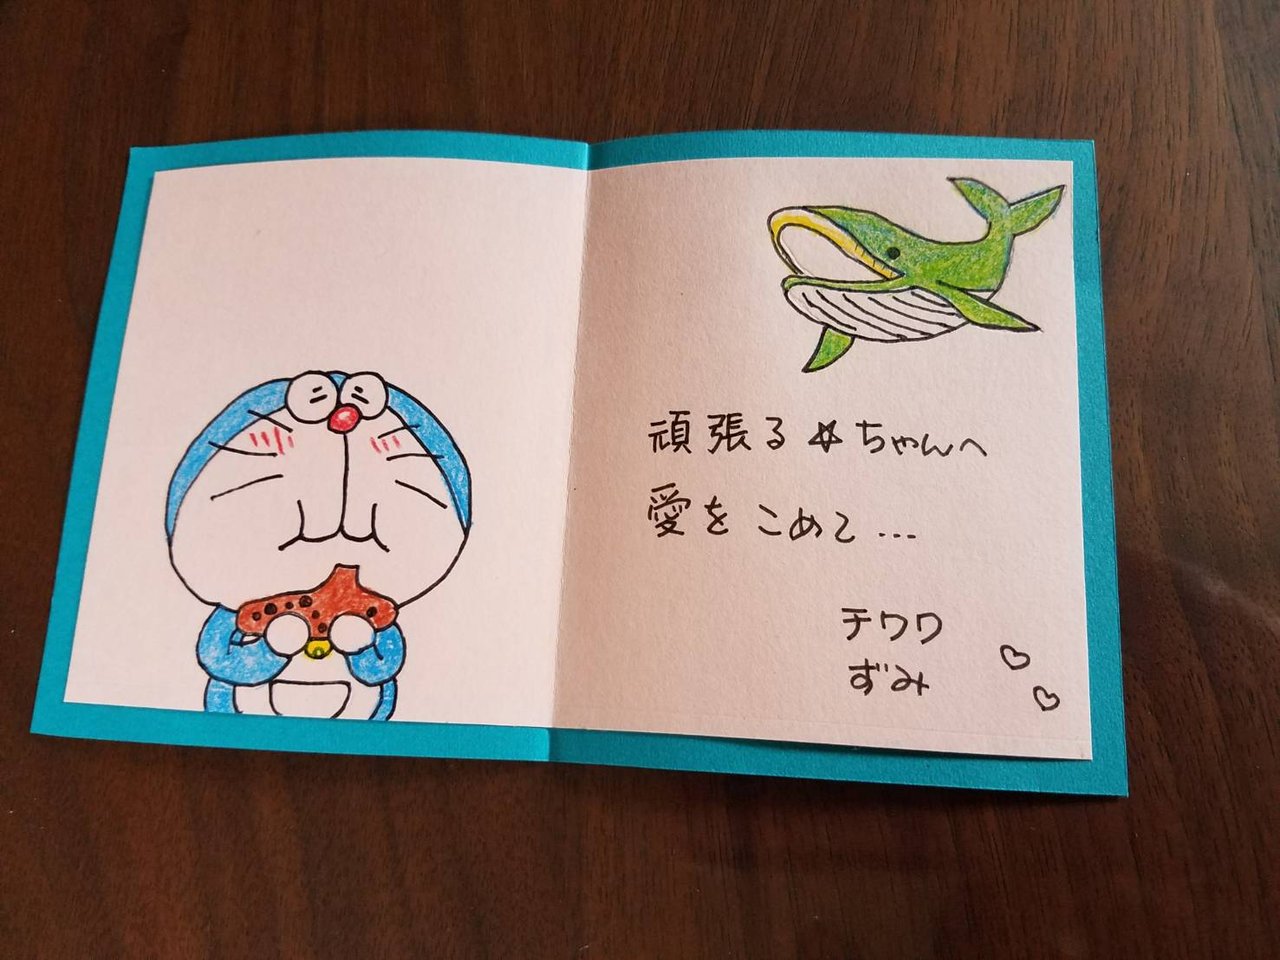 頑張る☆ちゃんへ
愛をこめて...
チワワ
ずみ